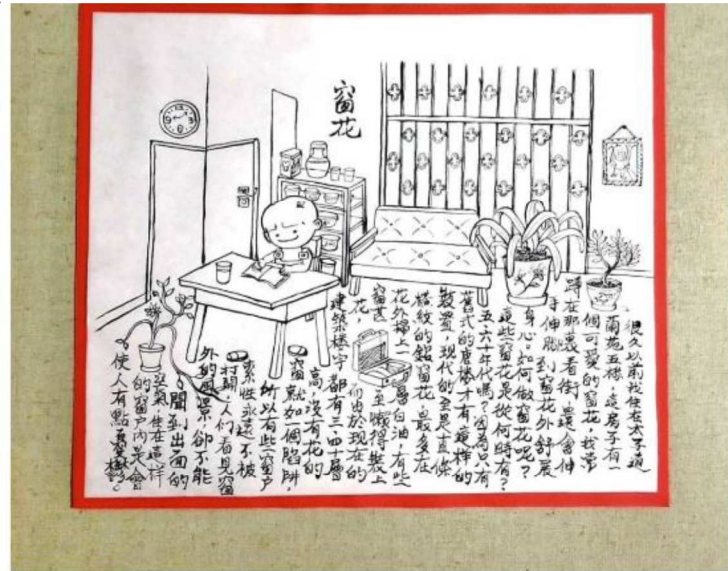 窗花
很久以前我住在太子道
蘭苑五樓，這房子有一
個可愛的窗花，我常
蹲在那裏看街，還會伸
手伸腳到窗花外舒展
身心。如何做窗花呢？
這些窗花是從何時有？
五六十年代嗎？因為只有
舊式的唐樓才有這樣的
裝置，現代的全是直條
橫紋的鋁窗花，最多在
花外楊上一層白油，有些
窗甚至懶得裝上
花，而由於現在的
建築樓宇都有三四十層
高，沒有花的
窗就如一個陷阱，
所以有些窗户
索性永遠不被
打開，人们看見窗
外的風景，卻不能
聞到出面的
空氣，住在這樣
的窗户內是會
使人有點憂鬱。